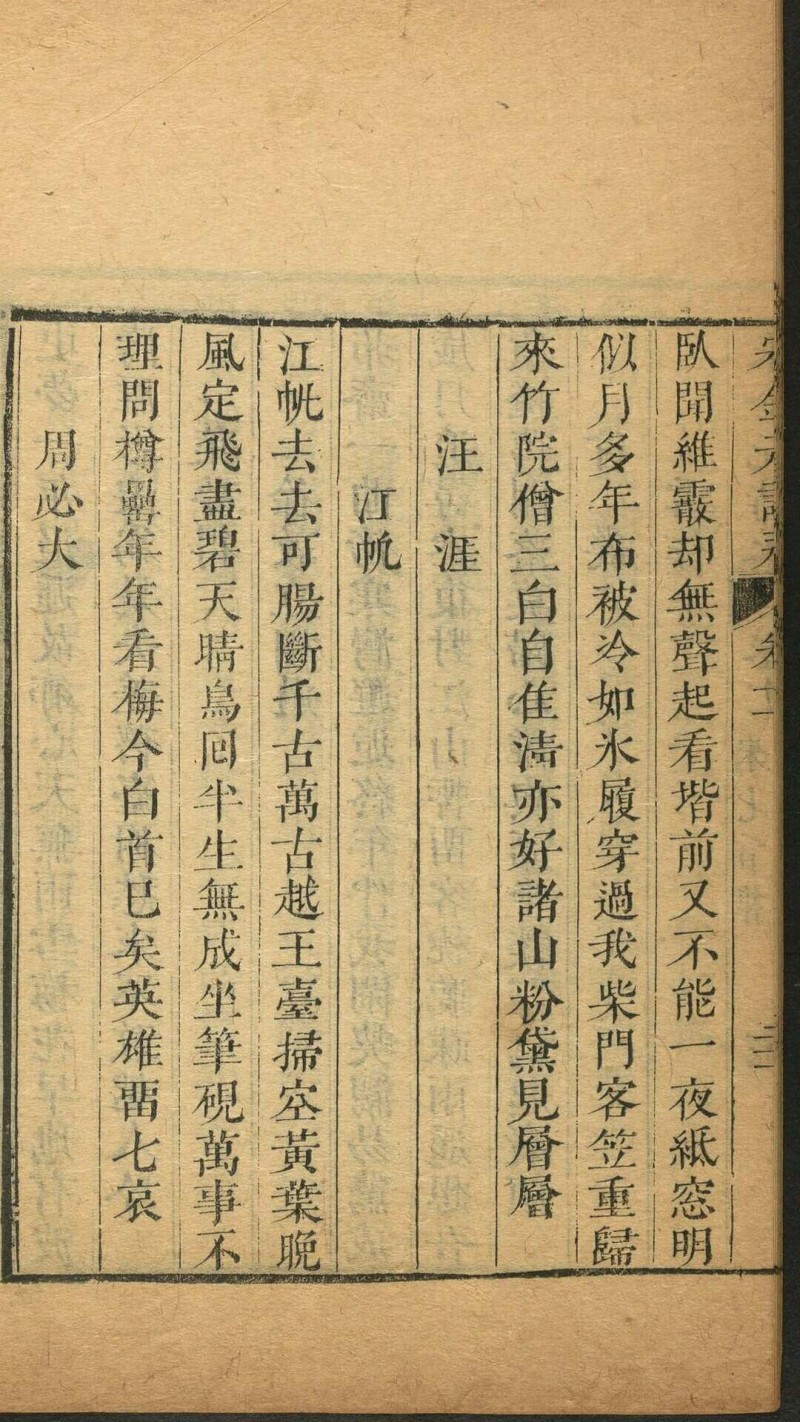 宋金元詩永 卷十一 三
臥聞維霰却無聲起看堦前又不能一夜紙窓明
似月多年布被冷如氷履穿過我柴門客笠重歸
來竹院僧三白自佳淸亦好諸山粉黛見層層
汪涯
江帆
江帆去去可腸斷千古萬古越王臺掃空黃葉晩
風定飛盡碧天晴鳥回半生無成坐筆硯萬事不
理問樽罍年年看梅今白首已矣英雄畱七哀
周必大